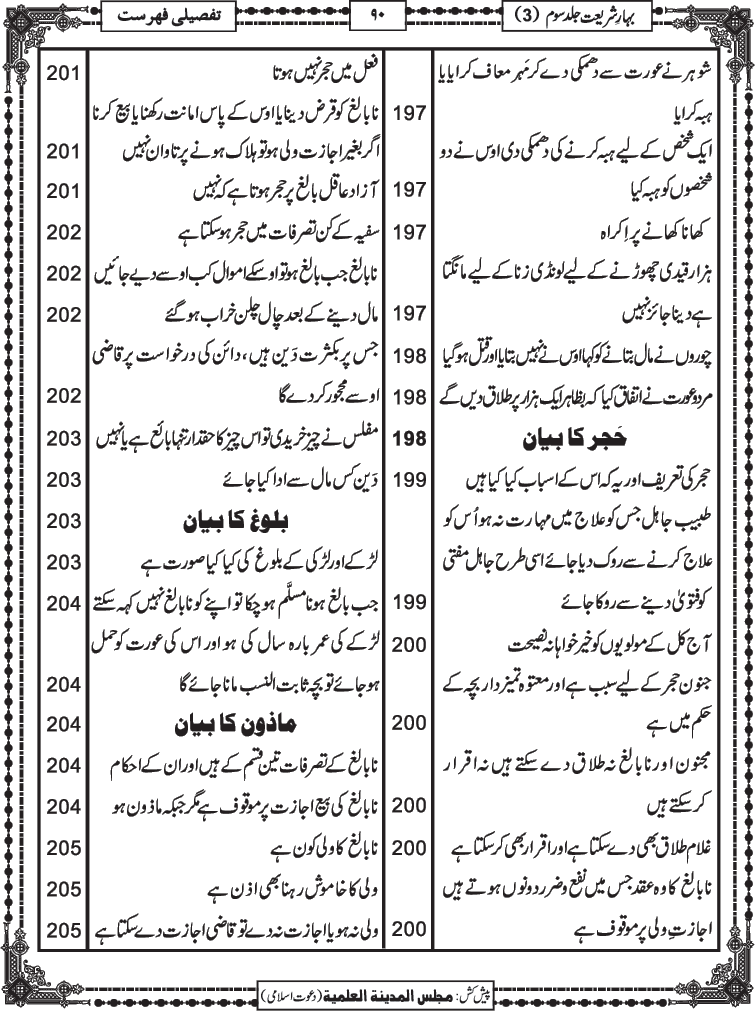 بہارِ شریعت جلد سوم (3)
۹۰
تفصیلی فہرست
شوہر نے عورت سے دھمکی دے کر مَہر معاف کرایا یا
ہبہ کرایا 197
ایک شخص کے لیے ہبہ کرنے کی دھمکی دی اوس نے دو
شخصوں کو ہبہ کیا 197
کھانا کھانے پر اِکراہ 197
ہزار قیدی چھوڑنے کے لیے لونڈی زنا کے لیے مانگتا
ہے دینا جائز نہیں 197
چوروں نے مال بتانے کو کہا اوس نے نہیں بتایا اور قتل ہوگیا 198
مرد و عورت نے اتفاق کیا کہ بظاہر ایک ہزار پر طلاق دیں گے 198
حَجر کا بیان 198
حجر کی تعریف اور یہ کہ اس کے اسباب کیا کیا ہیں 199
طبیب جاہل جس کو علاج میں مہارت نہ ہو اُس کو
علاج کرنے سے روک دیا جائے اسی طرح جاہل مفتی
کو فتویٰ دینے سے روکا جائے 199
آج کل کے مولویوں کو خیر خواہانہ نصیحت 200
جنون حجر کے لیے سبب ہے اور معتوہ تمیزدار بچہ کے
حکم میں ہے 200
مجنون اور نابالغ نہ طلاق دے سکتے ہیں نہ اقرار
کرسکتے ہیں 200
غلام طلاق بھی دے سکتا ہے اور اقرار بھی کرسکتا ہے 200
نابالغ کا وہ عقد جس میں نفع و ضرر دونوں ہوتے ہیں
اجازتِ ولی پر موقوف ہے 200
فعل میں حجر نہیں ہوتا 201
نابالغ کو قرض دینا یا اوس کے پاس امانت رکھنا یا بیع کرنا
اگر بغیر اجازت ولی ہو تو ہلاک ہونے پر تاوان نہیں 201
آزاد عاقل بالغ پر حجر ہوتا ہے کہ نہیں 201
سفیہ کے کن تصرفات میں حجر ہوسکتا ہے 202
نابالغ جب بالغ ہو تو اوسکے اموال کب اوسے دیے جائیں 202
مال دینے کے بعد چال چلن خراب ہوگئے 202
جس پر بکثرت دَین ہیں، دائن کی درخواست پر قاضی
اوسے محجور کردے گا 202
مفلس نے چیز خریدی تو اس چیز کا حقدار تنہا بائع ہے یا نہیں 203
دَین کس مال سے ادا کیا جائے 203
بلوغ کا بیان 203
لڑکے اور لڑکی کے بلوغ کی کیا کیا صورت ہے 203
جب بالغ ہونا مسلَّم ہوچکا تو اپنے کو نابالغ نہیں کہہ سکتے 204
لڑکے کی عمر بارہ سال کی ہو اور اس کی عورت کو حمل
ہوجائے تو بچہ ثابت النسب مانا جائے گا 204
ماذون کا بیان 204
نابالغ کے تصرفات تین قسم کے ہیں اور ان کے احکام 204
نابالغ کی بیع اجازت پر موقوف ہے مگر جبکہ ماذون ہو 204
نابالغ کا ولی کون ہے 205
ولی کا خاموش رہنا بھی اذن ہے 205
ولی نہ ہو یا اجازت نہ دے تو قاضی اجازت دے سکتا ہے 205
پیش کش: مجلس المدينة العلمية (دعوت اسلامی)